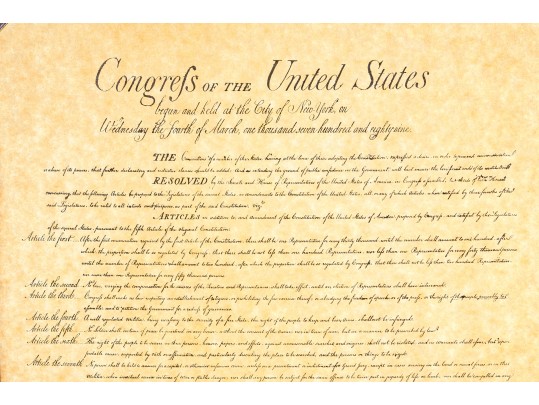 Congreſs OF THE United States
begun and held at the City of New York, on
Wednesday the fourth of March, one thousand seven hundred and eighty nine.
THE Conventions of a number of the States having at the time of their adopting the Constitution, expressed a desire, in order to prevent
of its powers, that further declaratory and restrictive clauses should be added: And as extending the ground of public confidence in the Government, will best ensure the
RESOLVED by the Senate and House of Representatives of the United States of America in Congreſs aſsembled, two thirds of both Houses
concurring, that the following Articles be proposed to the Legislatures of the several States, as amendments to the Constitution of the United States, all or any of which Articles, when ratified by three fourths of the said
Legislatures, to be valid to all intents and purposes, as part of the said Constitution, viz.
ARTICLES in addition to, and Amendment of the Constitution of the United States of America, proposed by Congreſs, and ratified by the Legislatures
of the several States, pursuant to the fifth Article of the original Constitution.
Article the first. After the first enumeration required by the first Article of the Constitution, there shall be one Representative for every thirty thousand, until the number shall amount to one hundred, after
which, the proportion shall be so regulated by Congreſs, that there shall be not leſs than one hundred Representatives, nor leſs than one Representative for every forty thousand persons,
until the number of Representatives shall amount to two hundred, after which, the proportion shall be so regulated by Congreſs, that there shall not be leſs than two hundred Representatives,
nor more than one Representative for every fifty thousand persons.
Article the second. No law, varying the compensation for the services of the Senators and Representatives, shall take effect, until an election of Representatives shall have intervened.
Article the third. Congreſs shall make no law respecting an establishment of religion, or prohibiting the free exercise thereof; or abridging the freedom of speech, or of the preſs; or the right of the people peaceably to
aſsemble, and to petition the Government for a redreſs of grievances.
Article the fourth. A well regulated militia, being neceſsary to the security of a free State, the right of the people to keep and bear arms, shall not be infringed.
Article the fifth. No Soldier shall, in time of peace be quartered in any house, without the consent of the owner, nor in time of war, but in a manner to be prescribed by law.
Article the sixth. The right of the people to be secure in their persons, houses, papers, and effects, against unreasonable searches and seizures, shall not be violated, and no warrants shall iſsue, but upon
probable cause, supported by oath or affirmation, and particularly describing the place to be searched, and the persons or things to be seized.
Article the seventh. No person shall be held to answer for a capital, or otherwise infamous crime, unleſs on a presentment or indictment of a Grand Jury, except in cases arising in the land or naval forces, or in the
Militia, when in actual service in time of war or public danger; nor shall any person be subject for the same offence to be twice put in jeopardy of life or limb; nor shall be compelled in any